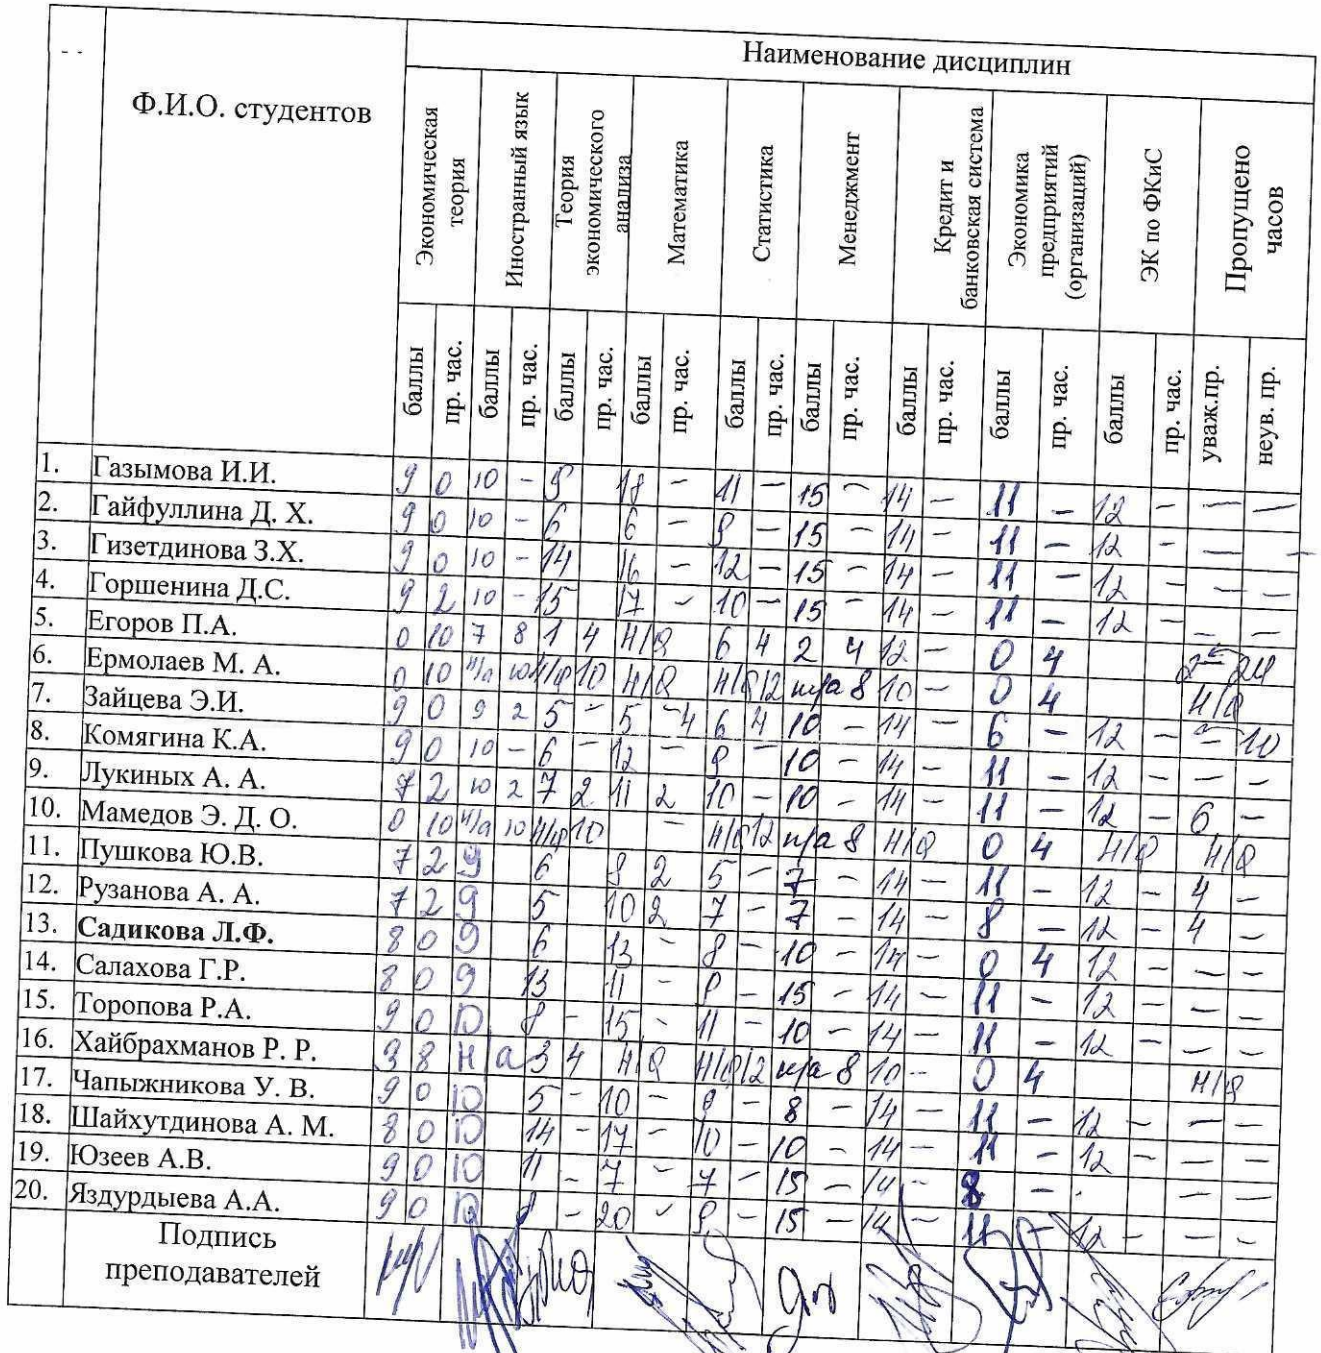 Наименование дисциплин
Ф.И.О. студентов
Экономическая теория
Иностранный язык
Теория экономического анализа
Математика
Статистика
Менеджмент
Кредит и банковская система
Экономика предприятий (организаций)
ЭК по ФКиС
Пропущено часов
баллы пр. час. баллы пр. час. баллы пр. час. баллы пр. час. баллы пр. час. баллы пр. час. баллы пр. час. баллы пр. час. баллы пр. час. уваж.пр. неув. пр.
1. Газымова И.И. 9 0 10 - 9 18 - 11 - 15 - 14 - 11 - 12 - - -
2. Гайфуллина Д. Х. 9 0 10 - 6 6 - 9 - 15 - 14 - 11 - 12 - -
3. Гизетдинова З.Х. 9 0 10 - 14 16 - 12 - 15 - 14 - 11 - 12 - - -
4. Горшенина Д.С. 9 2 10 - 15 17 - 10 - 15 - 14 - 11 - 12 - - -
5. Егоров П.А. 0 10 7 8 1 4 н/а 6 4 2 4 12 - 0 4 24
6. Ермолаев М. А. 0 10 н/а 10 н/а 10 н/а н/а 12 н/а 8 10 - 0 4 н/а
7. Зайцева Э.И. 9 0 9 2 5 - 5 4 6 4 10 - 14 - 6 - 12 - - 10
8. Комягина К.А. 9 0 10 - 6 - 12 - 9 - 10 - 14 - 11 - 12 - - -
9. Лукиных А. А. 7 2 10 2 7 2 11 2 10 - 10 - 14 - 11 - 12 - 6 -
10. Мамедов Э. Д. О. 0 10 н/а 10 н/а 10 - н/а 12 н/а 8 н/а 0 4 н/а н/а
11. Пушкова Ю.В. 7 2 9 6 8 2 5 - 7 - 14 - 11 - 12 - 4 -
12. Рузанова А. А. 7 2 9 5 10 2 7 - 7 - 14 - 8 - 12 - 4 -
13. Садикова Л.Ф. 8 0 9 6 13 - 8 - 10 - 14 - 0 4 12 - - -
14. Салахова Г.Р. 8 0 9 13 11 - 9 - 15 - 14 - 11 - 12 - - -
15. Торопова Р.А. 9 0 10 8 - 15 - 11 - 10 - 14 - 11 - 12 - - -
16. Хайбрахманов Р. Р. 3 8 н а 3 4 н/а н/а 12 н/а 8 10 - 0 4 н/а
17. Чапыжникова У. В. 9 0 10 5 - 10 - 9 - 8 - 14 - 11 - 12 - - -
18. Шайхутдинова А. М. 8 0 10 14 - 17 - 10 - 10 - 14 - 11 - 12 - - -
19. Юзеев А.В. 9 0 10 11 - 7 - 7 - 15 - 14 - 8 - - -
20. Яздурдыева А.А. 9 0 10 8 - 20 - 9 - 15 - 14 - 11 - 12 - - -
Подпись
преподавателей